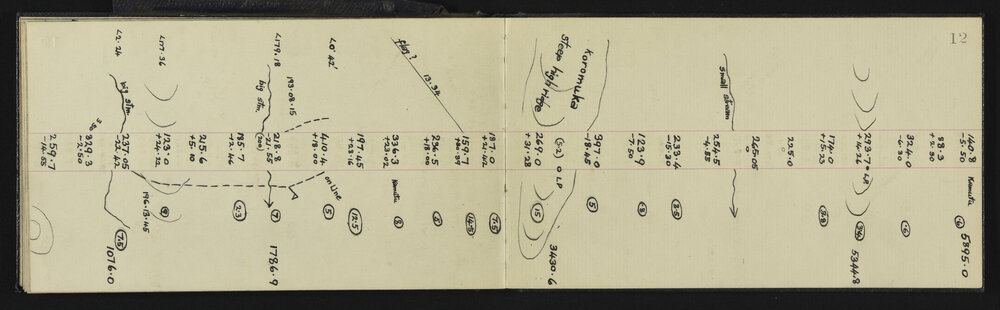 12
140.8
-5.50
Kamutu
6
5895.0
88.3
+2.80
324.0
-6.30
.6
293.7
+14.26
34
5344.8
174.0
+15.23
8.8
225.0
0
265.05
0
small stream
254.5
-4.55
233.4
-15.30
8.5
123.9
-7.50
8
397.0
-18.45
5
Koromuka
steep high ridge
(52) 0 LP
269.0
+31.28
15
3430.6
187.0
+21.402
7.5
159.7
14.5
13.34
flag?
236.5
+18.00
8
336.3
+23.02
Kamutu
8
197.45
+28.16
12.5
L0° 42'
410.4
+18.00
on line
5
L179.18
193.08.15
big stm.
218.8
-21.55
(200)
7
1786.9
185.7
-12.46
2.3
215.6
+5.10
L177.36
123.0
+24.22
9
196.13.45
L2.24
big stm.
237.05
-22.42
7.5
1076.0
329.3
-2.50
259.7
-14.55